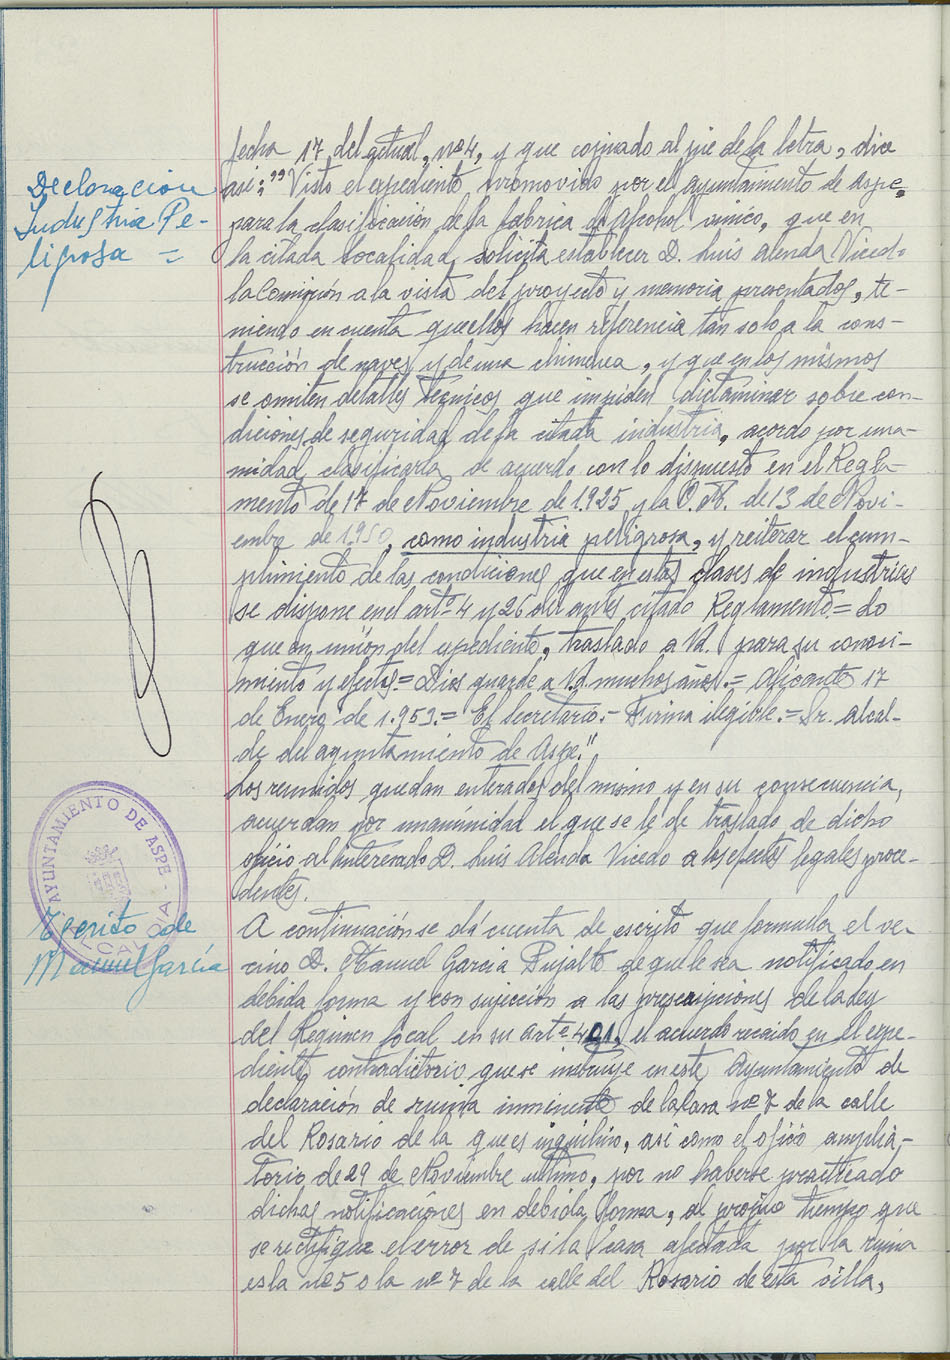 fecha 17 del actual, nº 4, y que copiado al pie de la letra, dice
Declaración
Industria Pe-
ligrosa =
asi: "Visto el expediente promovido por el ayuntamiento de Aspe,
para la clasificación de la fabrica de Alcohol vinico, que en
la citada localidad, solicita establecer D. Luis Alenda Vicedo
la Comisión a la vista del proyecto y memoria presentados, te-
niendo en cuenta que ellos hacen referencia tan solo a la cons-
trucción de naves y de una chimenea, y que en los mismos
se omiten detalles técnicos que impiden dictaminar sobre con-
diciones de seguridad de la citada industria, acordo por una-
midad, clasificarla de acuerdo con lo dispuesto en el Regla-
mento de 17 de Noviembre de 1.925 y la O. M. de 13 de Novi-
embre de 1.950, como industria peligrosa, y reiterar el cum-
plimiento de las condiciones que en estas clases de industrias
se dispone en el artº 4 y 26 del antes citado Reglamento.= Lo
que en unión del expediente, traslado a Vd. para su conoci-
miento y efectos.= Dios guarde a Vd. muchos años.= Alicante 17
de Enero de 1.953.= El Secretario.- Firma ilegible.= Sr. Alcal-
de del ayuntamiento de Aspe."
Los reunidos quedan enterados del mismo y en su consecuencia,
acuerdan por unanimidad el que se le de traslado de dicho
oficio al interesado D. Luis Alenda Vicedo a los efectos legales proce-
dentes.
AYUNTAMIENTO DE ASPE - ALCALDIA -
Escrito de
Manuel García
A continuación se da cuenta de escrito que formula el ve-
cino D. Manuel Garcia Pujalte de que le sea notificado en
debida forma y con sujeccion a las prescripciones de la ley
del Regimen local en su artº 401, el acuerdo recaido en el expe-
diente contradictorio que se instruye en este Ayuntamiento de
declaración de ruina inminente de la casa nº 7 de la calle
del Rosario de la que es inquilino, asi como el oficio amplia-
torio de 29 de Noviembre ultimo, por no haberse practicado
dichas notificaciones en debida forma, al propio tiempo que
se rectifique el error de si la casa afectada por la ruina
es la nº 5 o la nº 7 de la calle del Rosario de esta villa,